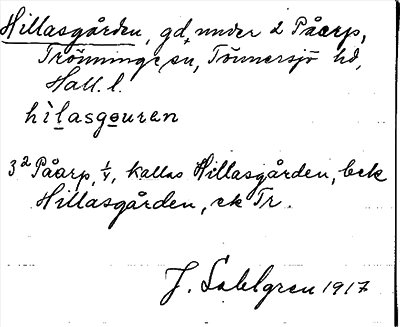 Hillasgården, gd, under 2 Påarp,
Trönninge sn, Tönnersjö hd,
Hall. l.
hìlasgo̤uren
3 2 Påarp, 1/4, kallas Hillasgården, bek
Hillasgården, ek Tr.
J. Sahlgren 1917